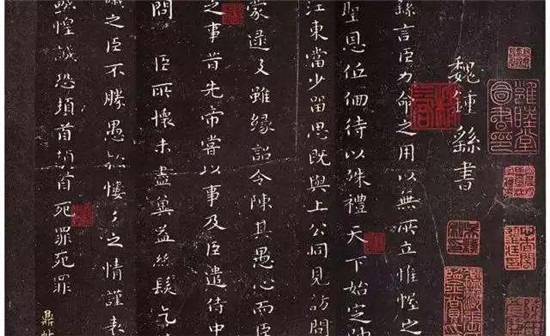 魏鍾繇書
繇言臣力命之用以無所立惟幄之
聖恩低佪待以殊禮天下始定
江東當少留思既與上公同見訪問
蒙逮及雖緣詔令陳其愚心而臣
之事昔先帝嘗以事及臣遣侍中
問臣所懷未盡冀益絲髮乞
議之臣不勝愚款慺々之情謹表
誠惶誠恐頓首頓首死罪死罪